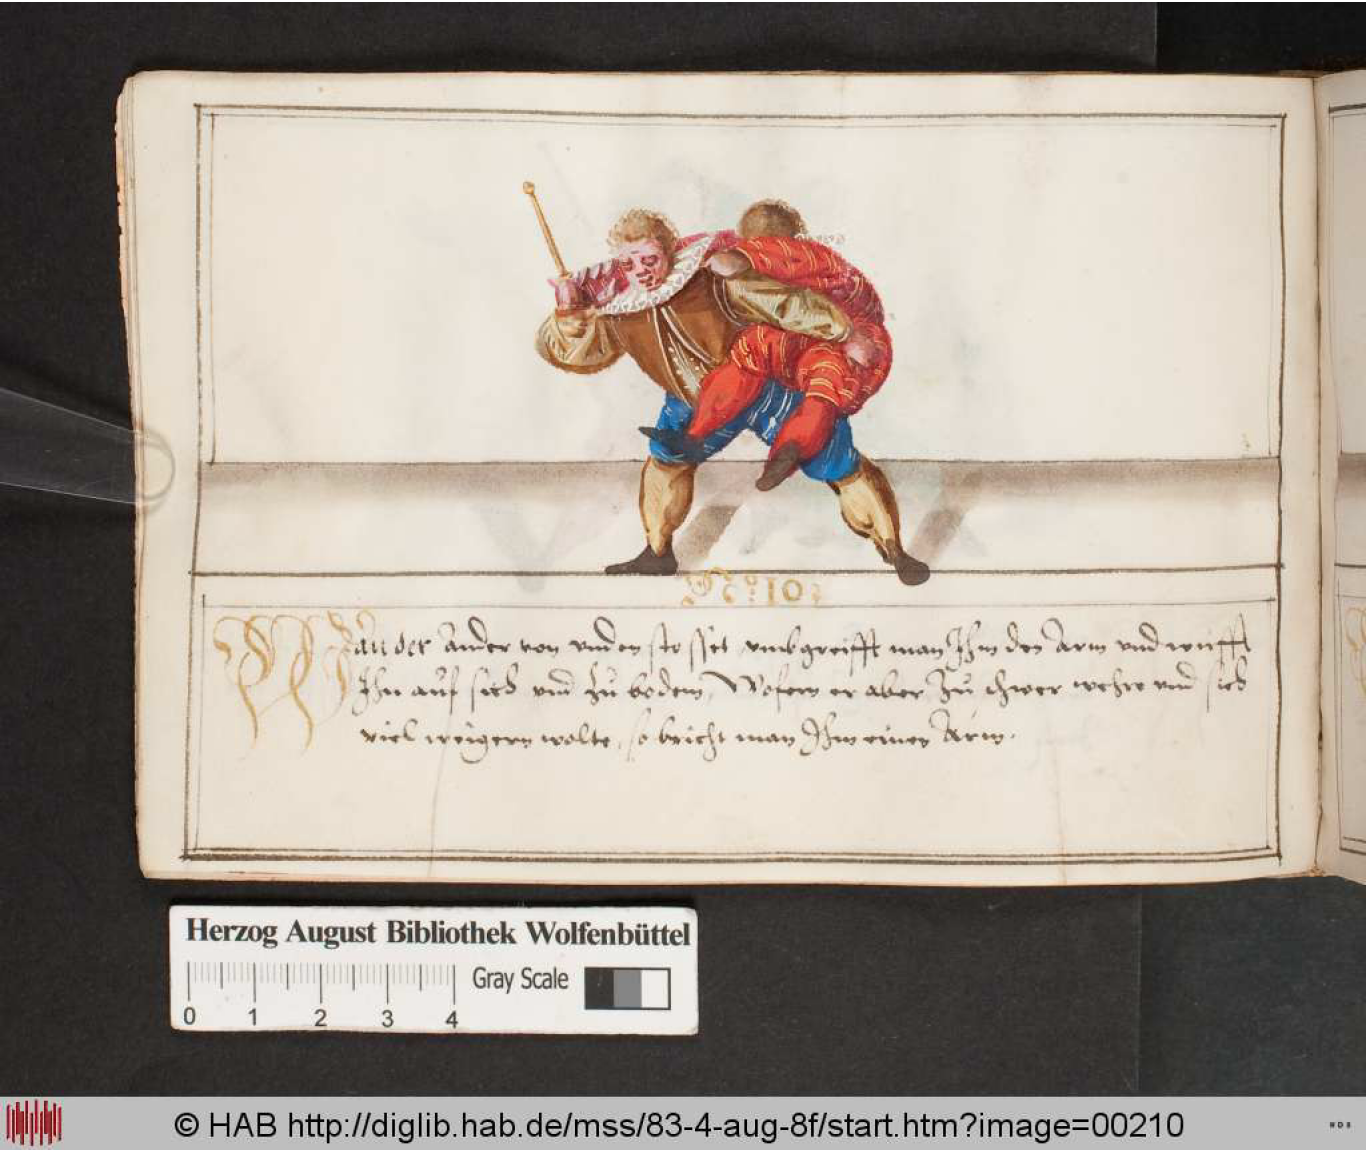 No: 10:
Wan der Ander von unden stosset umbgreifft man Ihm den Arm und wirfft
Ihn auf sich und zu bodem, Wofern er aber zu schwer were und sich
viel weigern wolte, so bricht man Ihm einen Arm.
Herzog August Bibliothek Wolfenbüttel
Gray Scale
0 1 2 3 4
© HAB http://diglib.hab.de/mss/83-4-aug-8f/start.htm?image=00210